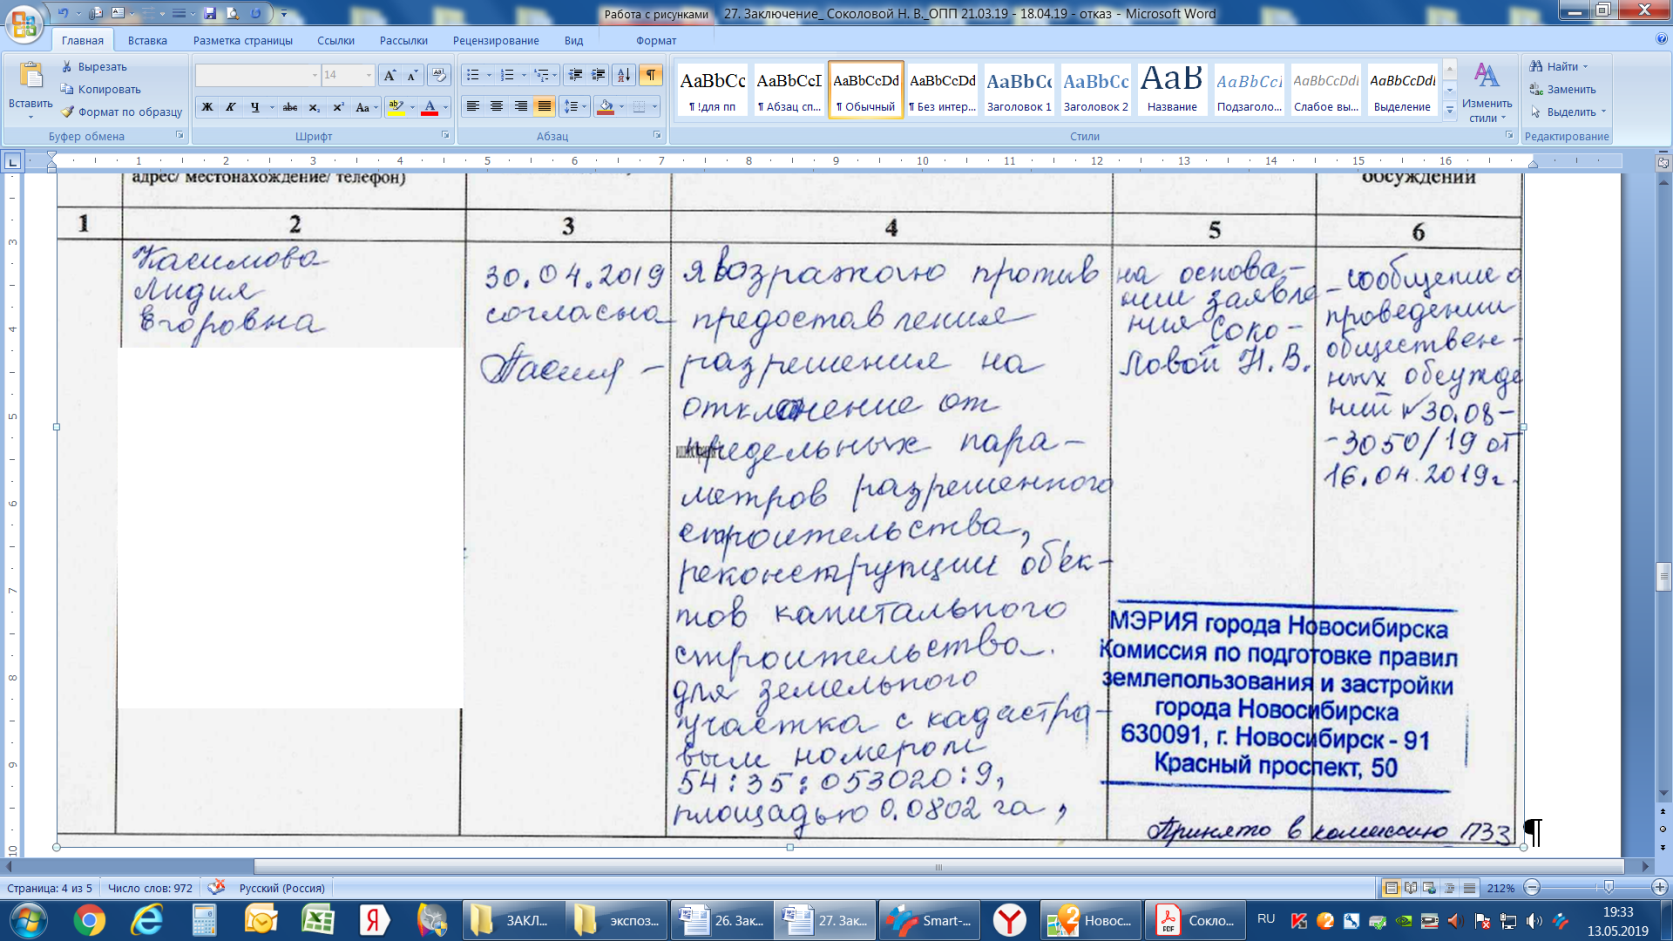 Работа с рисунками
27. Заключение_ Соколовой Н. В._ОПП 21.03.19 - 18.04.19 - отказ - Microsoft Word
Главная Вставка Разметка страницы Ссылки Рассылки Рецензирование Вид Формат
Вставить
Вырезать
Копировать
Формат по образцу
Буфер обмена
14
Ж К Ч abc x₂ x² Aa
Шрифт
Абзац
AaBbCc AaBbCcI AaBbCcDd AaBbCcDd AaBbCc AaBbCc AaB AaBbCcI AaBbCcDdI AaBbCcDd
¶ !для пп ¶ Абзац сп... ¶ Обычный ¶ Без интер... Заголовок 1 Заголовок 2 Название Подзаголо... Слабое вы... Выделение
Стили
Изменить
стили
Найти
Заменить
Выделить
Редактирование
1 2 3 4 5 6 7 8 9 10 11 12 13 14 15 16
адрес/ местонахождение/ телефон)
обсуждений
1 2 3 4 5 6
Касимова
Лидия
Егоровна
30.04.2019
согласна
я возражаю против
предоставления
разрешения на
отклонение от
предельных пара-
метров разрешенного
строительства,
реконструкции обьек-
тов капитального
строительства.
для земельного
участка с кадастро-
вым номером
54:35:053020:9,
площадью 0.0802 га,
на основа-
нии заявле
ния Соко-
ловой Н.В.
-сообщение о
проведении
обществен-
ных обсужде
ний №30.08-
-3050/19 от
16.04.2019г.
МЭРИЯ города Новосибирска
Комиссия по подготовке правил
землепользования и застройки
города Новосибирска
630091, г. Новосибирск - 91
Красный проспект, 50
Принято в комиссию ПЗЗ ¶
Страница: 4 из 5 Число слов: 972 Русский (Россия) 212%
ЗАКЛ... экспоз... 26. Зак... 27. Зак... Smart-... Новос... Сокло... RU 19:33
13.05.2019